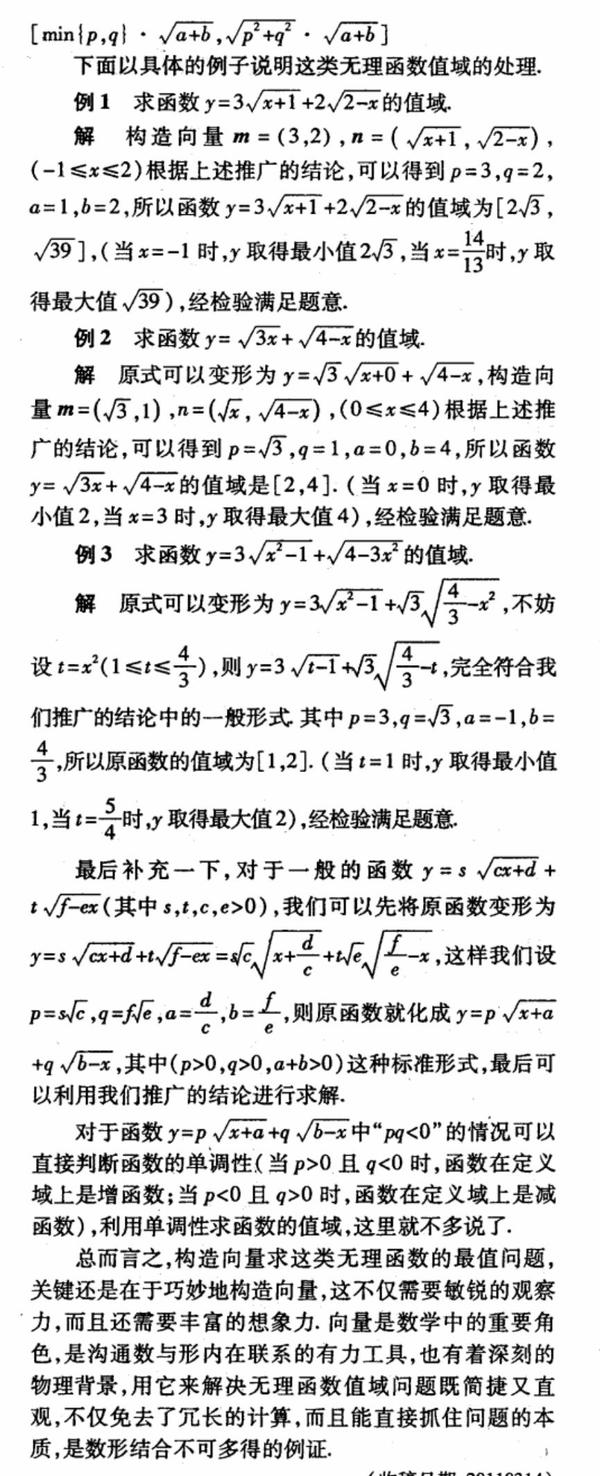 [min{p,q}·√(a+b),√(p²+q²)·√(a+b)]
下面以具体的例子说明这类无理函数值域的处理.
例1 求函数y=3√(x+1)+2√(2-x)的值域.
解 构造向量 m=(3,2),n=(√(x+1),√(2-x)),
(-1≤x≤2)根据上述推广的结论,可以得到p=3,q=2,
a=1,b=2,所以函数y=3√(x+1)+2√(2-x)的值域为[2√3,
√39],(当x=-1时,y取得最小值2√3,当x=14/13时,y取
得最大值√39),经检验满足题意.
例2 求函数y=√(3x)+√(4-x)的值域.
解 原式可以变形为y=√3√(x+0)+√(4-x),构造向
量m=(√3,1),n=(√x,√(4-x)),(0≤x≤4)根据上述推
广的结论,可以得到p=√3,q=1,a=0,b=4,所以函数
y=√(3x)+√(4-x)的值域是[2,4].(当x=0时,y取得最
小值2,当x=3时,y取得最大值4),经检验满足题意.
例3 求函数y=3√(x²-1)+√(4-3x²)的值域.
解 原式可以变形为y=3√(x²-1)+√3√(4/3-x²),不妨
设t=x²(1≤t≤4/3),则y=3√(t-1)+√3√(4/3-t),完全符合我
们推广的结论中的一般形式.其中p=3,q=√3,a=-1,b=
4/3,所以原函数的值域为[1,2].(当t=1时,y取得最小值
1,当t=5/4时,y取得最大值2),经检验满足题意.
最后补充一下,对于一般的函数y=s√(cx+d)+
t√(f-ex)(其中s,t,c,e>0),我们可以先将原函数变形为
y=s√(cx+d)+t√(f-ex)=s√c√(x+d/c)+t√e√(f/e-x),这样我们设
p=s√c,q=f√e,a=d/c,b=f/e,则原函数就化成y=p√(x+a)
+q√(b-x),其中(p>0,q>0,a+b>0)这种标准形式,最后可
以利用我们推广的结论进行求解.
对于函数y=p√(x+a)+q√(b-x)中“pq<0”的情况可以
直接判断函数的单调性(当p>0且q<0时,函数在定义
域上是增函数;当p<0且q>0时,函数在定义域上是减
函数),利用单调性求函数的值域,这里就不多说了.
总而言之,构造向量求这类无理函数的最值问题,
关键还是在于巧妙地构造向量,这不仅需要敏锐的观察
力,而且还需要丰富的想象力.向量是数学中的重要角
色,是沟通数与形内在联系的有力工具,也有着深刻的
物理背景,用它来解决无理函数值域问题既简捷又直
观,不仅免去了冗长的计算,而且能直接抓住问题的本
质,是数形结合不可多得的例证.